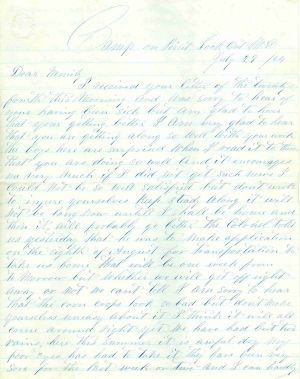 Camp on Point Look Out Md.
July 29 /64
Dear Family
I received your letter of the twenty
fourth this Morning and was sorry to hear of
your having been sick but I am glad to hear
that your getting better I Am very glad to hear
that you are getting along so well with your work
the boys her are surprised when I read it to them
that you are doing so well and it encourages
me very much if I did not get such news I
could Not be so well satisfied but dont work
to injure yourselves Keep Glad along it will
not be long how untill I shall be home and
then it will probably go better the Colonel tells
us yesterday that he was to Make application
on the eighth of August for transportation to
take us home that will be one week from
to Morrow but whether we will get off right
away or not we cant tell I Am sorry to hear
that the corn crops look so bad but dont make
yourselves uneasy about it I think it will all
come around right yet We have had but two
rains here this summer it is awful dry My
poor eyes has had to take it they have been very
sore for the last week or two and I can hardly